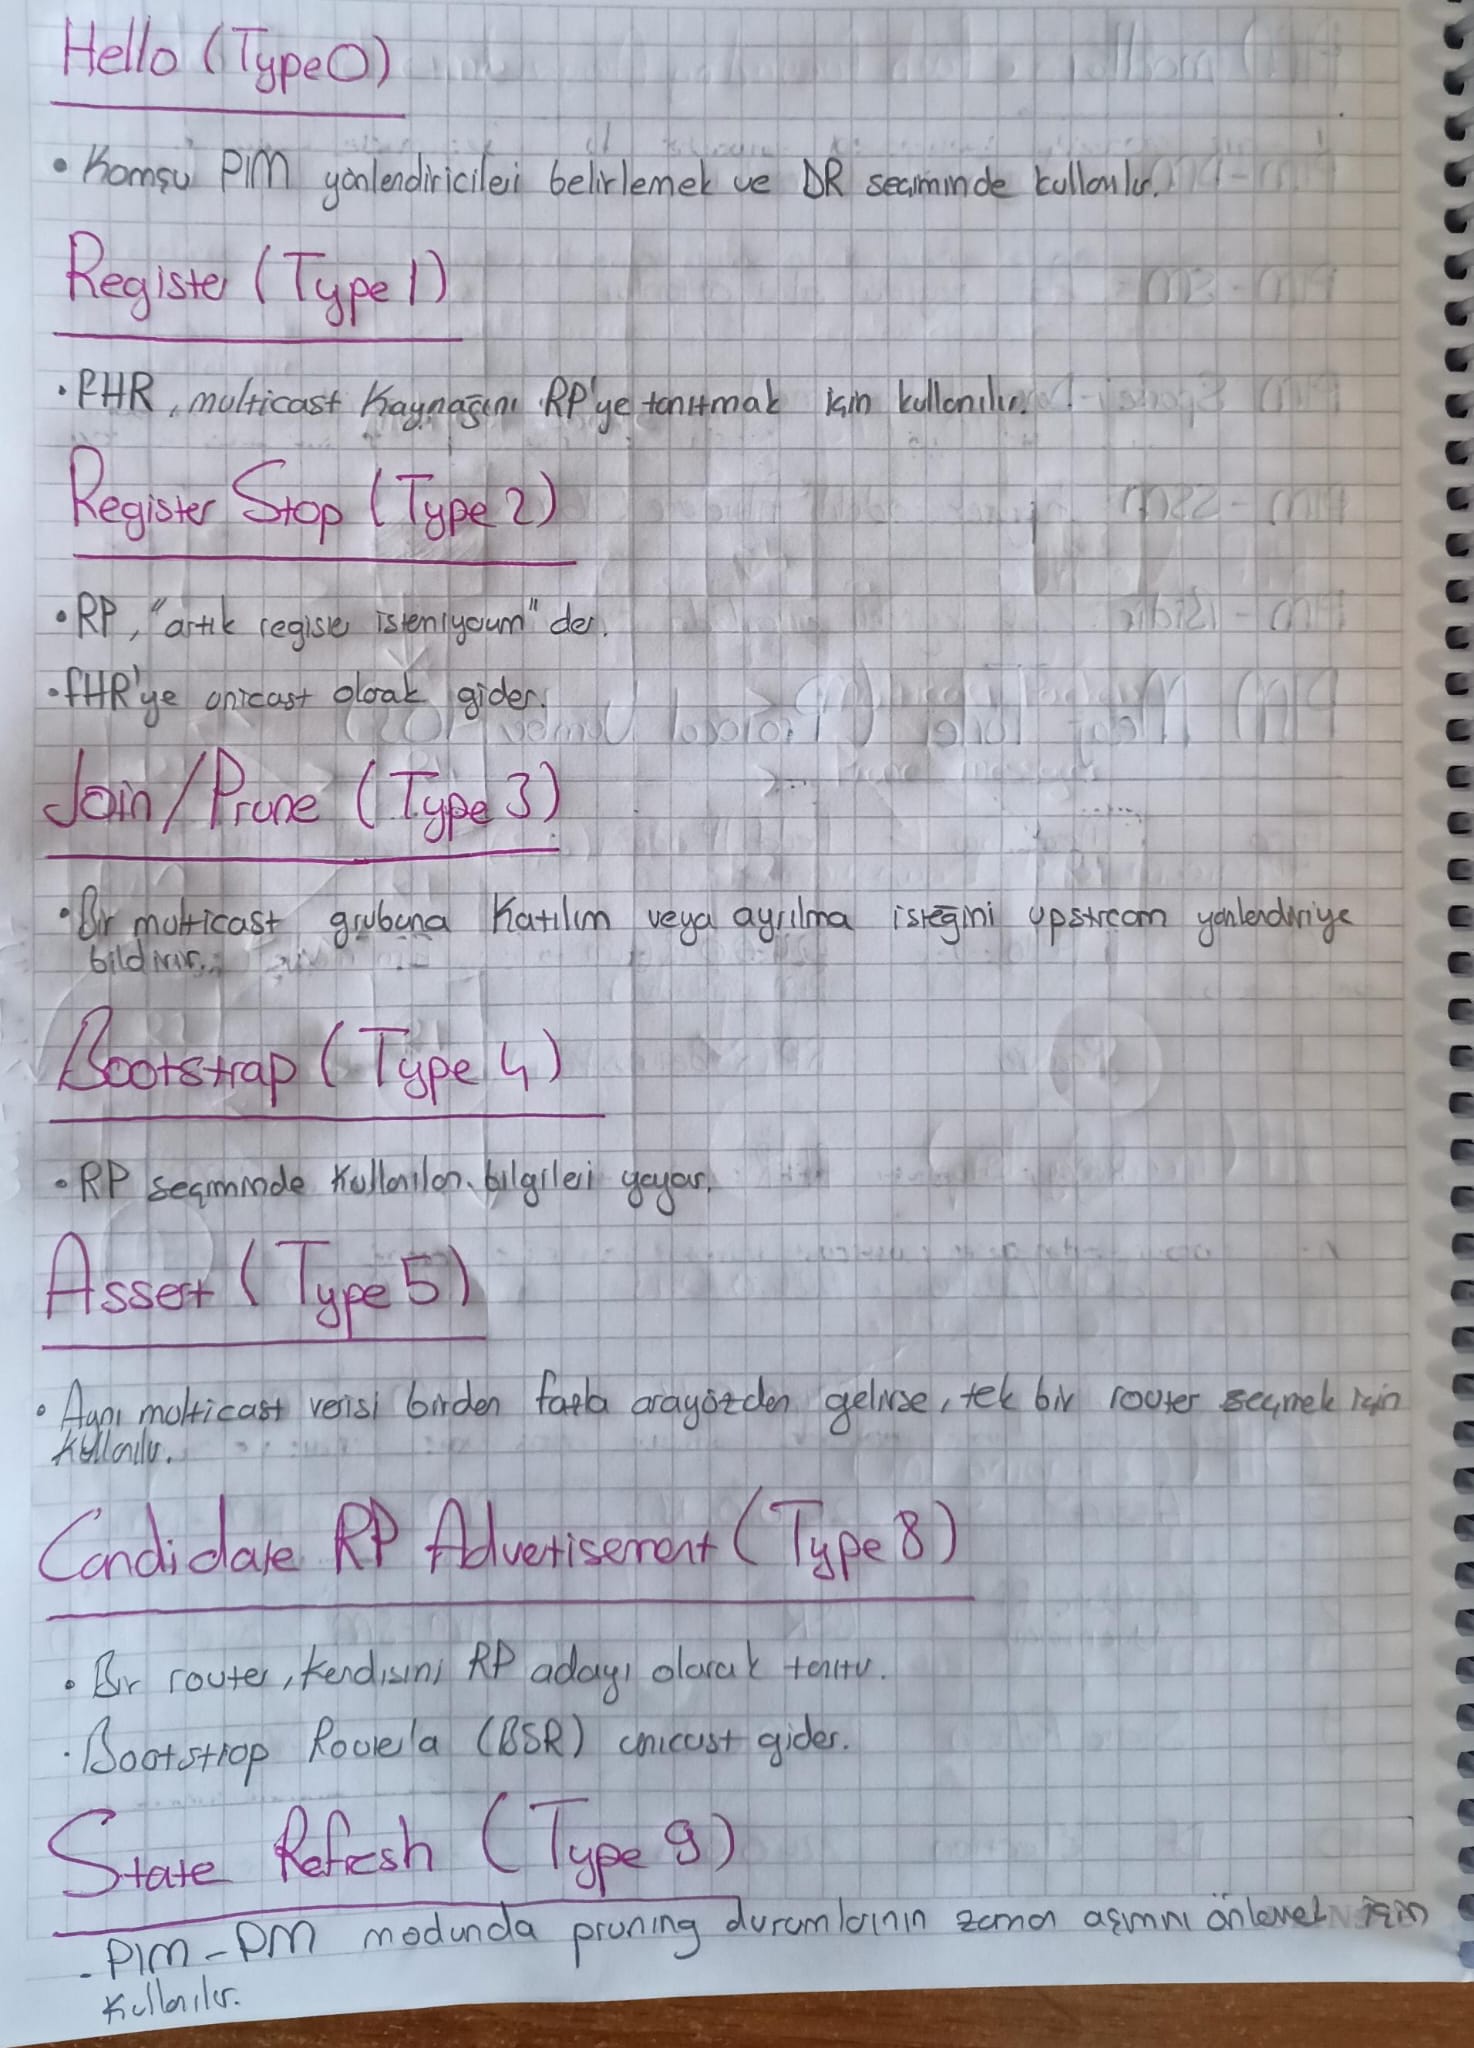 Hello (Type 0)
• Komşu PIM yönlendiricileri belirlemek ve DR seçiminde kullanılır.
Register (Type 1)
• FHR, multicast kaynağını RP'ye tanıtmak için kullanılır.
Register Stop (Type 2)
• RP, "artık register istemiyorum" der.
• FHR'ye unicast olarak gider.
Join/Prune (Type 3)
• Bir multicast grubuna katılım veya ayrılma isteğini upstream yönlendiriciye
bildirir.
Bootstrap (Type 4)
• RP seçiminde kullanılan bilgileri yayar.
Assert (Type 5)
• Aynı multicast verisi birden fazla arayüzden gelirse, tek bir router seçmek için
kullanılır.
Candidate RP Advertisement (Type 8)
• Bir router, kendisini RP adayı olarak tanıtır.
• Bootstrap Router'a (BSR) unicast gider.
State Refresh (Type 9)
- PIM-DM modunda pruning durumlarının zaman aşımını önlemek için
kullanılır.